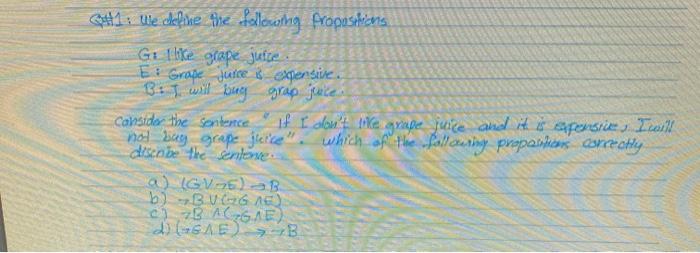 Q#1: We define the following Propositions
G: I like grape juice.
E: Grape juice is expensive.
B: I will buy grap juice.
Consider the sentence " If I don't like grape juice and it is expensive, I will
not buy grape juice". which of the following propositions correctly
describe the sentence.
a) (G∨¬E) → B
b) ¬B ∨ (¬G ∧E)
c) ¬B ∧ (¬G∧E)
d) (¬G∧E) → ¬B